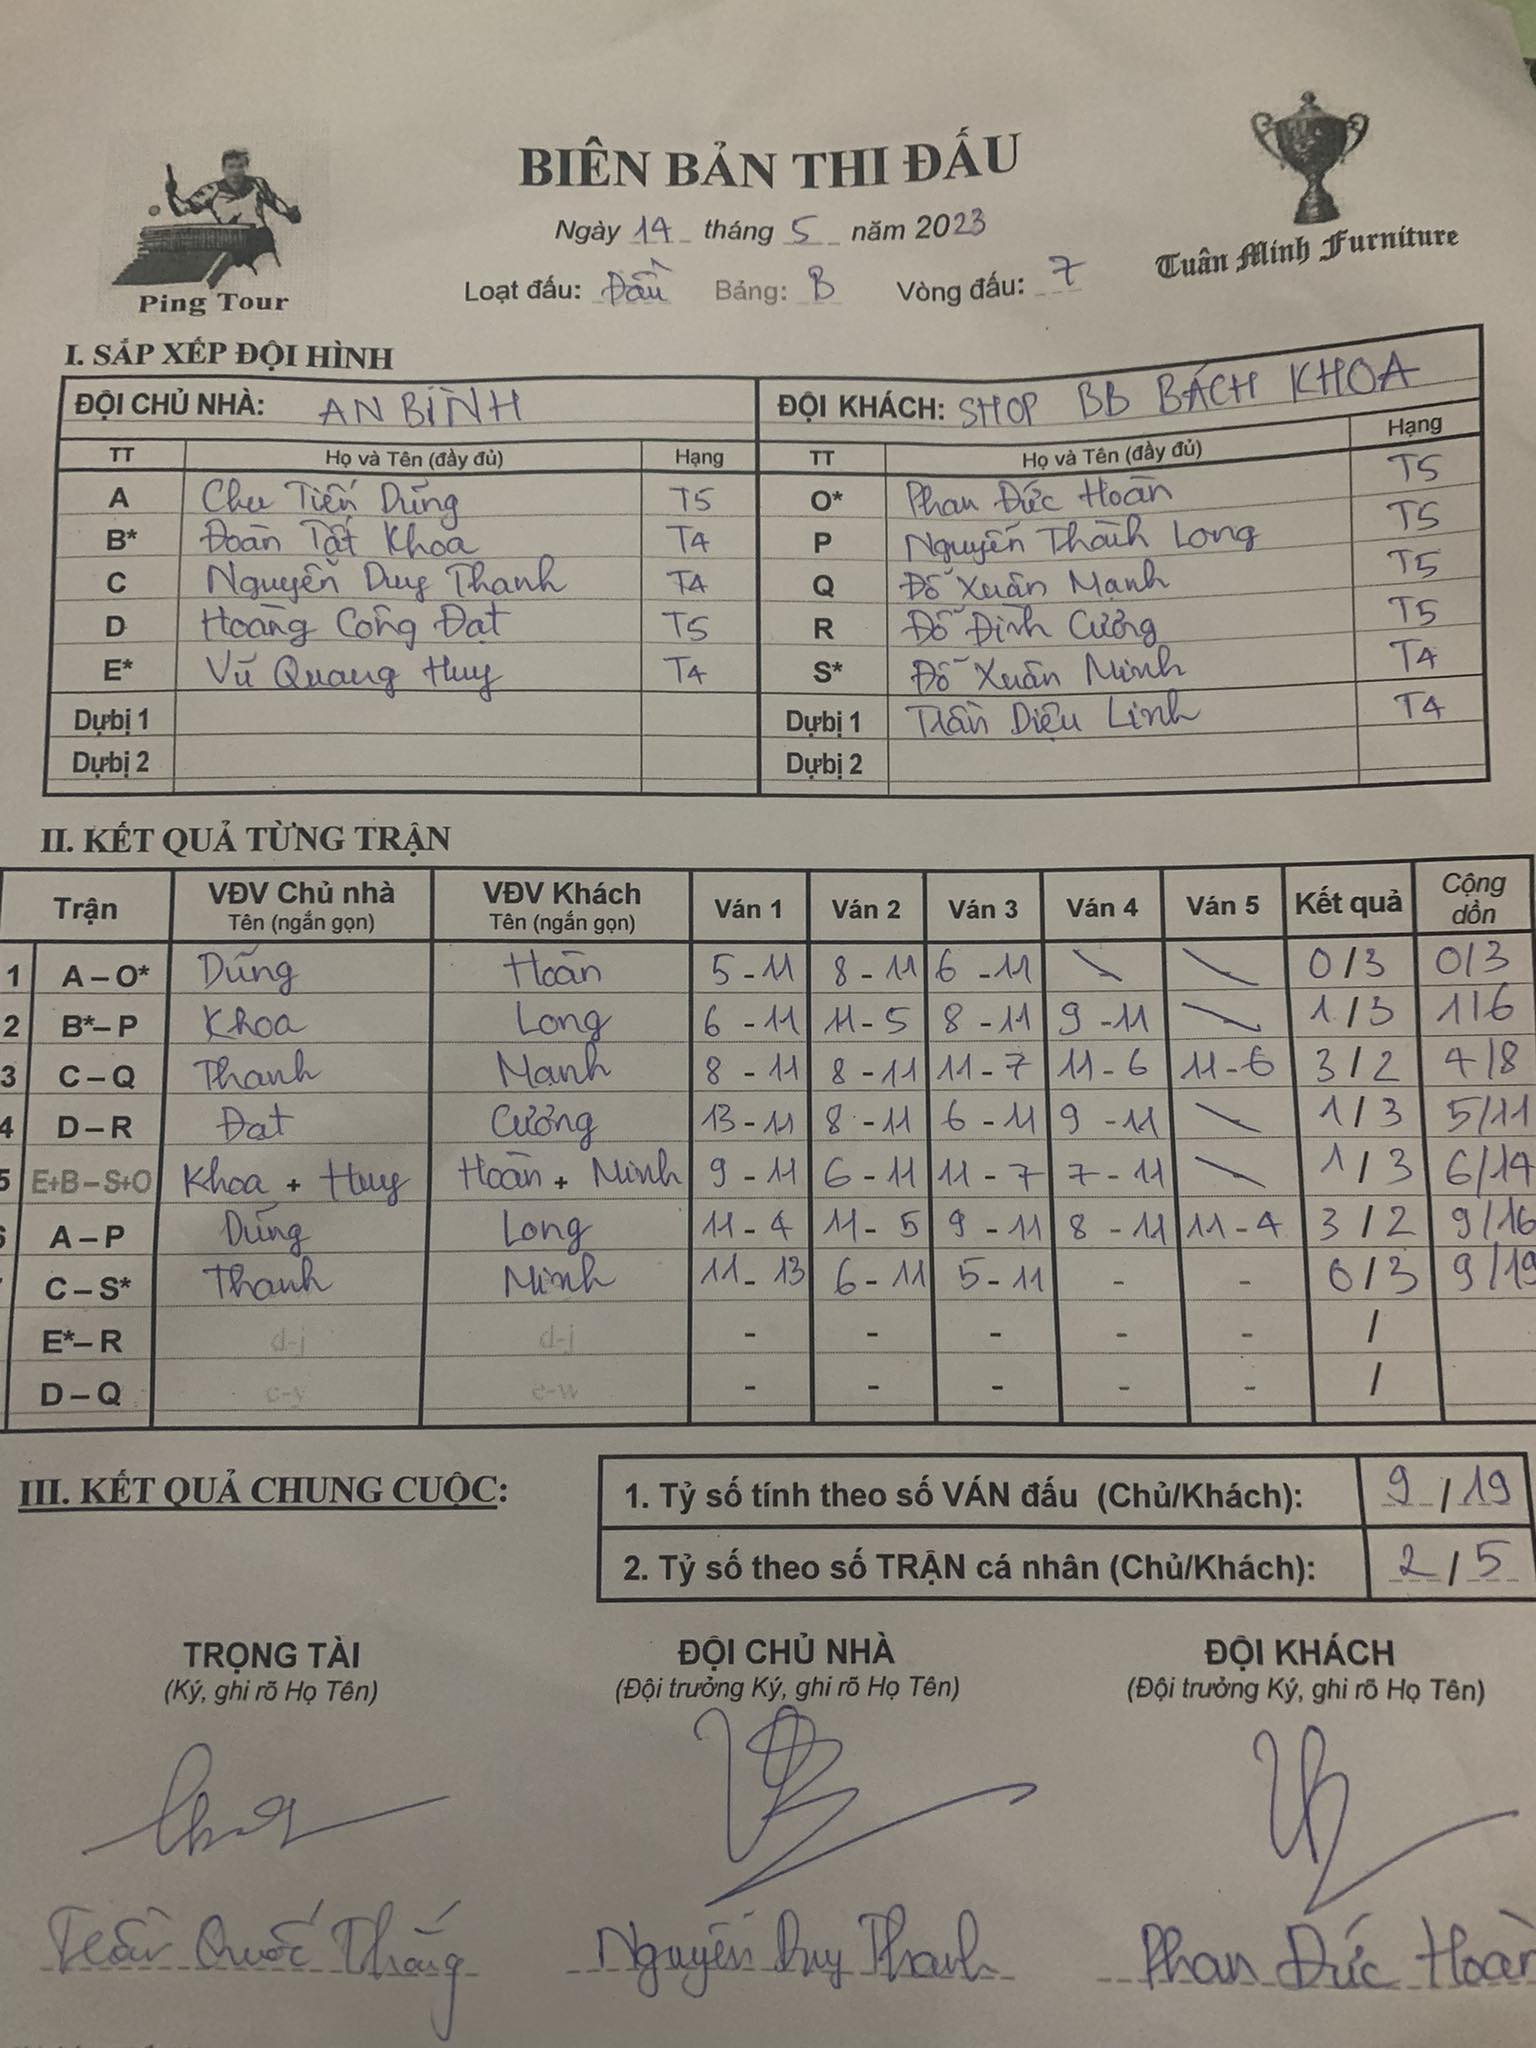 BIÊN BẢN THI ĐẤU
Ping Tour
Tuân Minh Furniture
Ngày 14 tháng 5 năm 2023
Loạt đấu: Đầu Bảng: B Vòng đấu: 7
I. SẮP XẾP ĐỘI HÌNH
ĐỘI CHỦ NHÀ: AN BÌNH ĐỘI KHÁCH: SHOP BB BÁCH KHOA
TT Họ và Tên (đầy đủ) Hạng TT Họ và Tên (đầy đủ) Hạng
A Chu Tiến Dũng T5 O* Phan Đức Hoàn T5
B* Đoàn Tất Khoa T4 P Nguyễn Thành Long T5
C Nguyễn Duy Thanh T4 Q Đỗ Xuân Mạnh T5
D Hoàng Công Đạt T5 R Đỗ Đình Cường T5
E* Vũ Quang Huy T4 S* Đỗ Xuân Minh T4
Dựbị 1 Dựbị 1 Trần Diệu Linh T4
Dựbị 2 Dựbị 2
II. KẾT QUẢ TỪNG TRẬN
Trận VĐV Chủ nhà VĐV Khách Ván 1 Ván 2 Ván 3 Ván 4 Ván 5 Kết quả Cộng dồn
Tên (ngắn gọn) Tên (ngắn gọn)
1 A – O* Dũng Hoàn 5 - 11 8 - 11 6 - 11 \ \ 0 / 3 0/3
2 B* – P Khoa Long 6 - 11 11 - 5 8 - 11 9 - 11 \ 1 / 3 1/6
3 C – Q Thanh Mạnh 8 - 11 8 - 11 11 - 7 11 - 6 11 - 6 3 / 2 4/8
4 D – R Đạt Cường 13 - 11 8 - 11 6 - 11 9 - 11 \ 1 / 3 5/11
5 E+B – S+O Khoa + Huy Hoàn + Minh 9 - 11 6 - 11 11 - 7 7 - 11 \ 1 / 3 6/14
6 A – P Dũng Long 11 - 4 11 - 5 9 - 11 8 - 11 11 - 4 3 / 2 9/16
C – S* Thanh Minh 11 - 13 6 - 11 5 - 11 - - 0 / 3 9/19
E* – R d-j d-j - - - - - /
D – Q c-y e-w - - - - - /
III. KẾT QUẢ CHUNG CUỘC:
1. Tỷ số tính theo số VÁN đấu (Chủ/Khách): 9 / 19
2. Tỷ số theo số TRẬN cá nhân (Chủ/Khách): 2 / 5
TRỌNG TÀI ĐỘI CHỦ NHÀ ĐỘI KHÁCH
(Ký, ghi rõ Họ Tên) (Đội trưởng Ký, ghi rõ Họ Tên) (Đội trưởng Ký, ghi rõ Họ Tên)
Trần Quốc Thắng Nguyễn Duy Thanh Phan Đức Hoàn